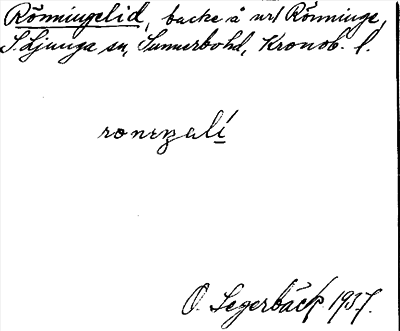 Rönningelid, backe å url Rönninge,
S. Ljunga sn, Sunnerbohd, Kronob. l.
O. Segerbäck 1937.